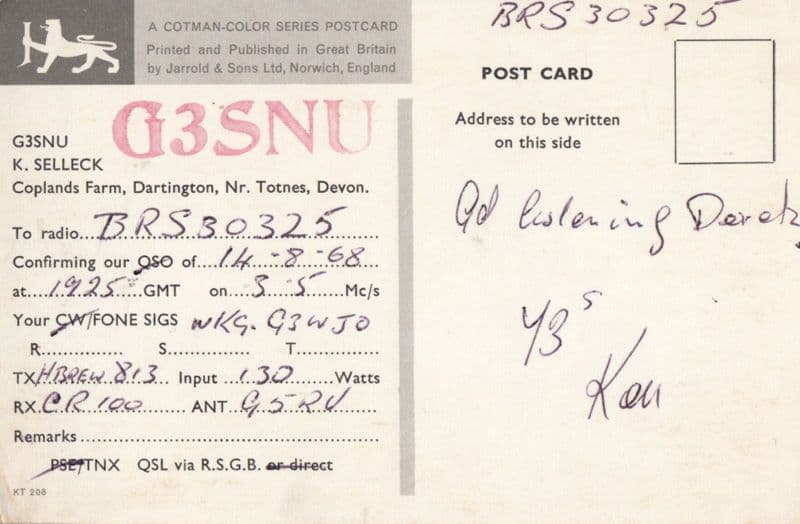 A COTMAN-COLOR SERIES POSTCARD
Printed and Published in Great Britain
by Jarrold & Sons Ltd, Norwich, England
G3SNU
G3SNU
K. SELLECK
Coplands Farm, Dartington, Nr. Totnes, Devon.
To radio BRS30325
Confirming our QSO of 14-8-68
at 1925 GMT on 3.5 Mc/s
Your CW/FONE SIGS WKG. G3WJO
R. S. T.
TX HBREW 813 Input 130 Watts
RX CR100 ANT G5RV
Remarks
PSE/TNX QSL via R.S.G.B. or direct
KT 208
BRS30325
POST CARD
Address to be written
on this side
Gd listening
73s
Ken